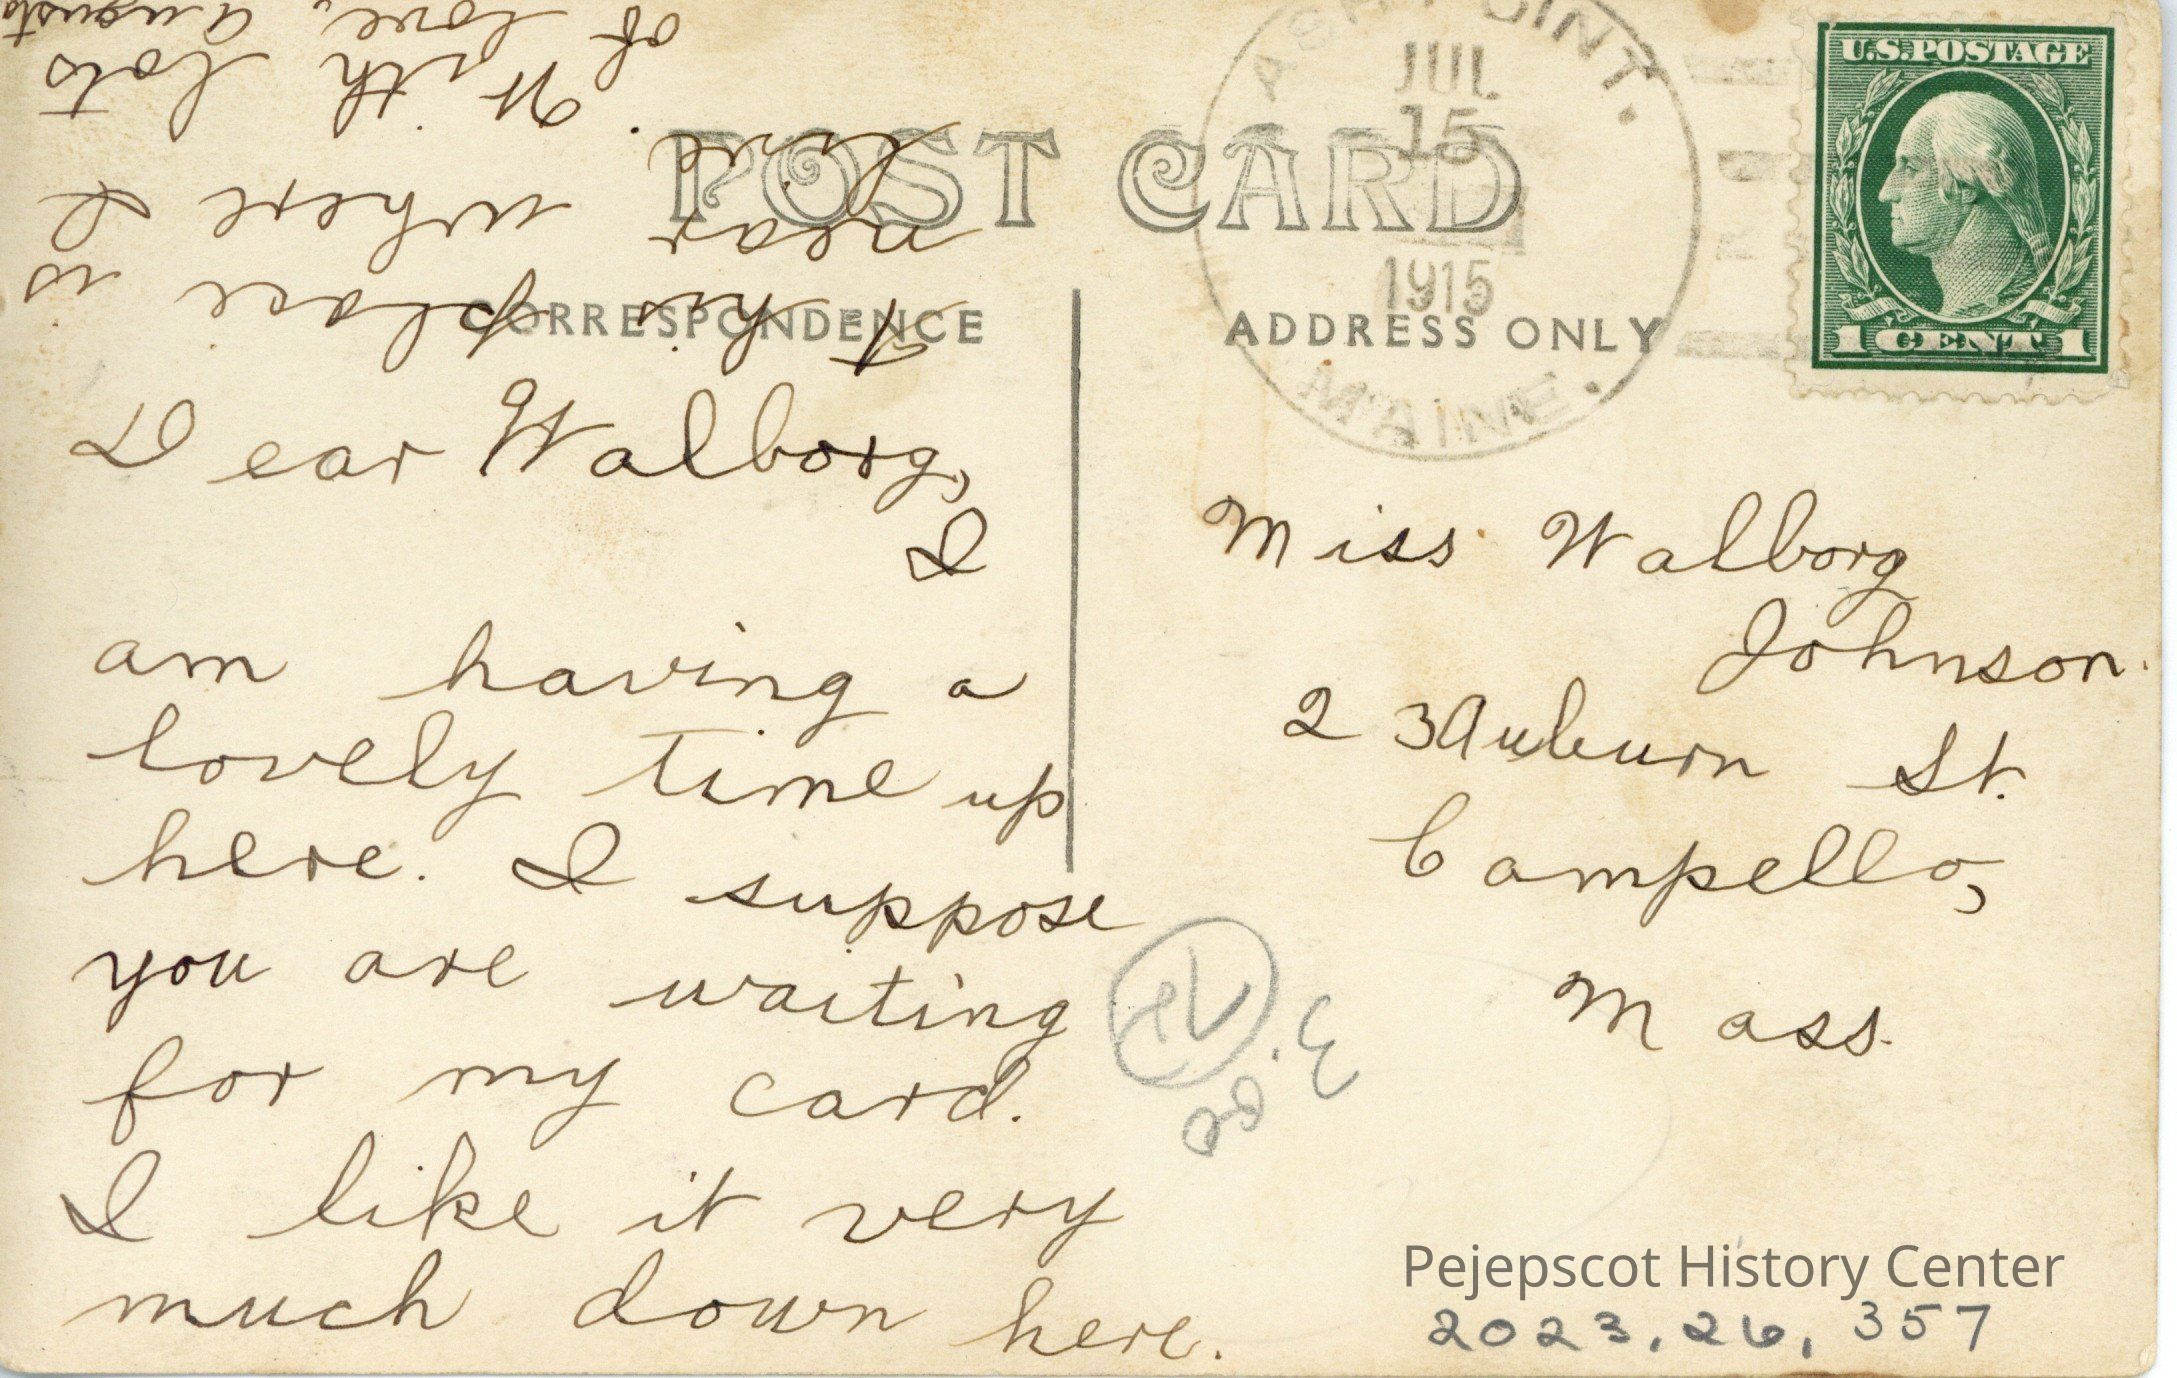 POST CARD
CORRESPONDENCE
ADDRESS ONLY
U.S. POSTAGE
1 CENT 1
ASH POINT.
JUL
15
1915
MAINE.
Dear Walborg,
I
am having a
lovely time up
here. I suppose
you are waiting
for my card.
I like it very
much down here.
this place is
near where I
live.
With lots
of love,
Augusta
Miss Walborg
Johnson.
23 Auburn St.
Campello,
Mass.
3.00
Pejepscot History Center
2023.26.357